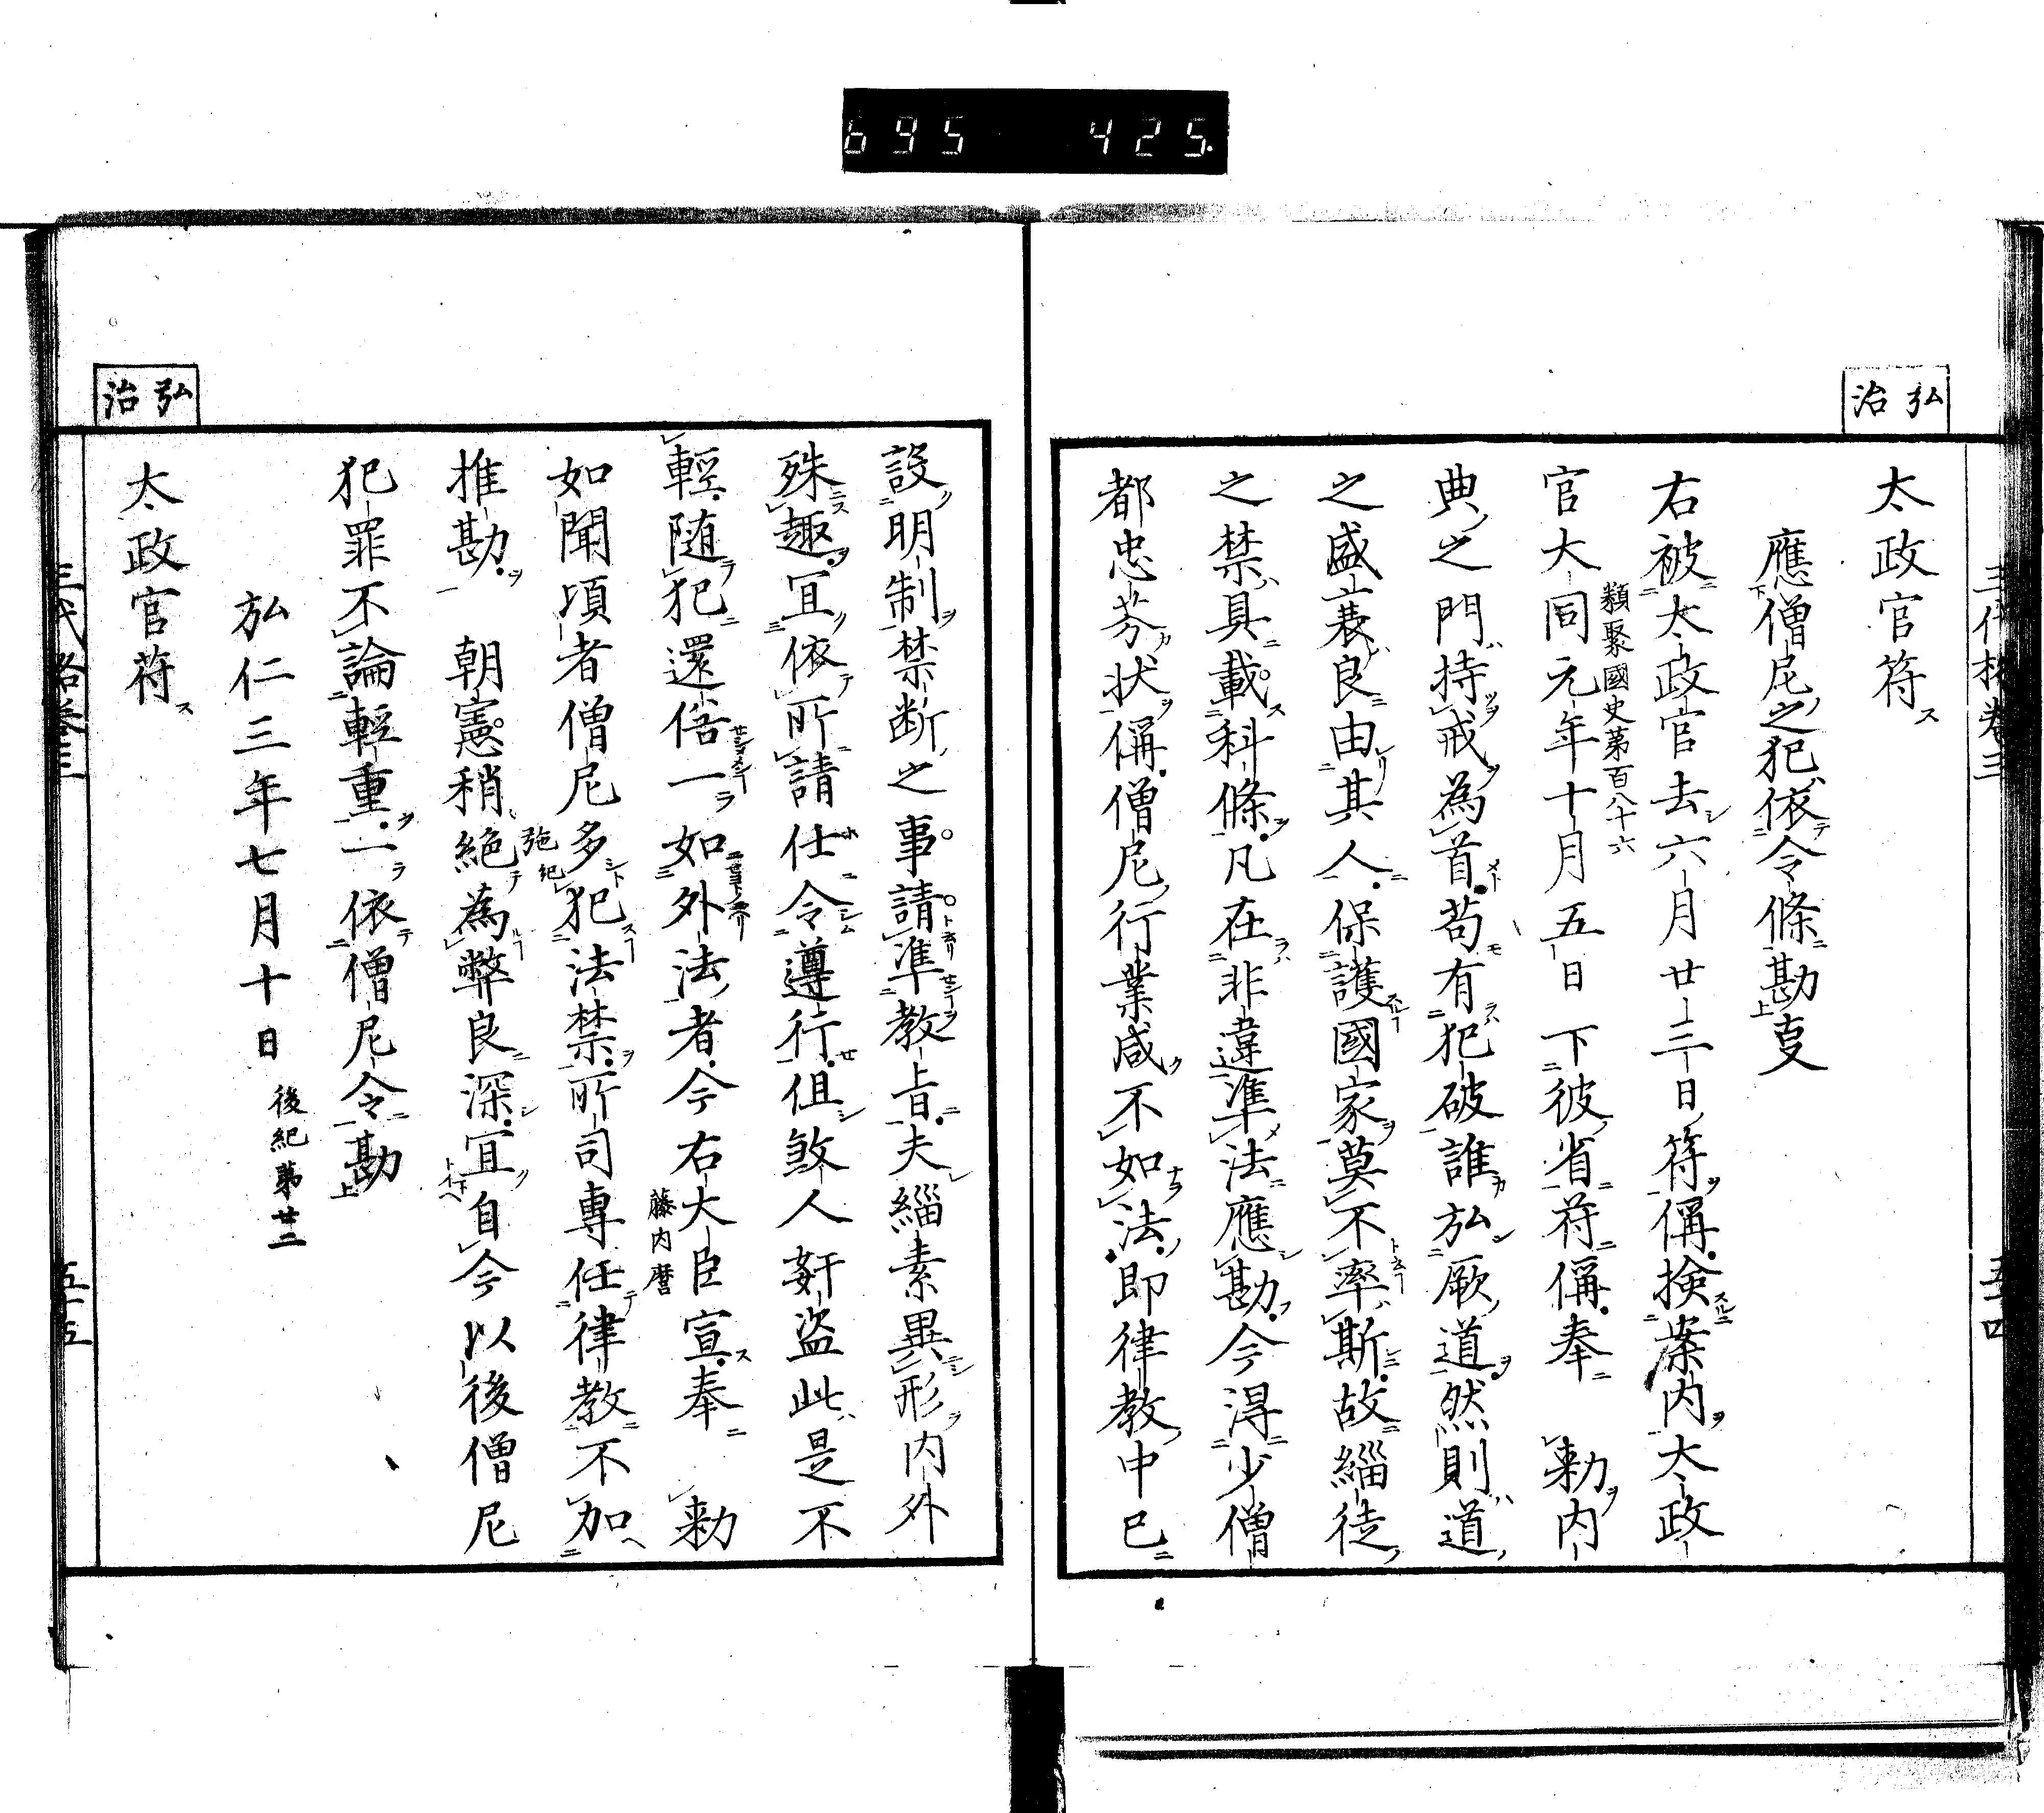 695 425
弘治
三代格卷三
五十四
太政官符
應僧尼之犯依令條勘叓
右被太政官去六月廿三日符偁撿案内太政
官大同元年十月五日下彼省符偁奉 勅内
類聚國史第百八十六
典之門持戒為首苟有犯破誰弘厥道然則道
之盛衰良由其人保護國家莫不率斯故緇徒
之禁具載科條凡在非違準法應勘今得少僧
都忠芬状偁僧尼行業咸不如法即律教中已
弘治
設明制禁断之事請準教旨夫緇素異形内外
殊趣冝依所請仕令遵行但煞人姧盗此是不
輕随犯還俗一如外法者今右大臣宣奉 勅
藤内麿
如聞頃者僧尼多犯法禁所司專任律教不加
推勘 朝憲稍絶為弊良深冝自今以後僧尼
弛紀
犯罪不論輕重一依僧尼令勘
弘仁三年七月十日
後紀第廿二
太政官符
三代格卷三
五十五